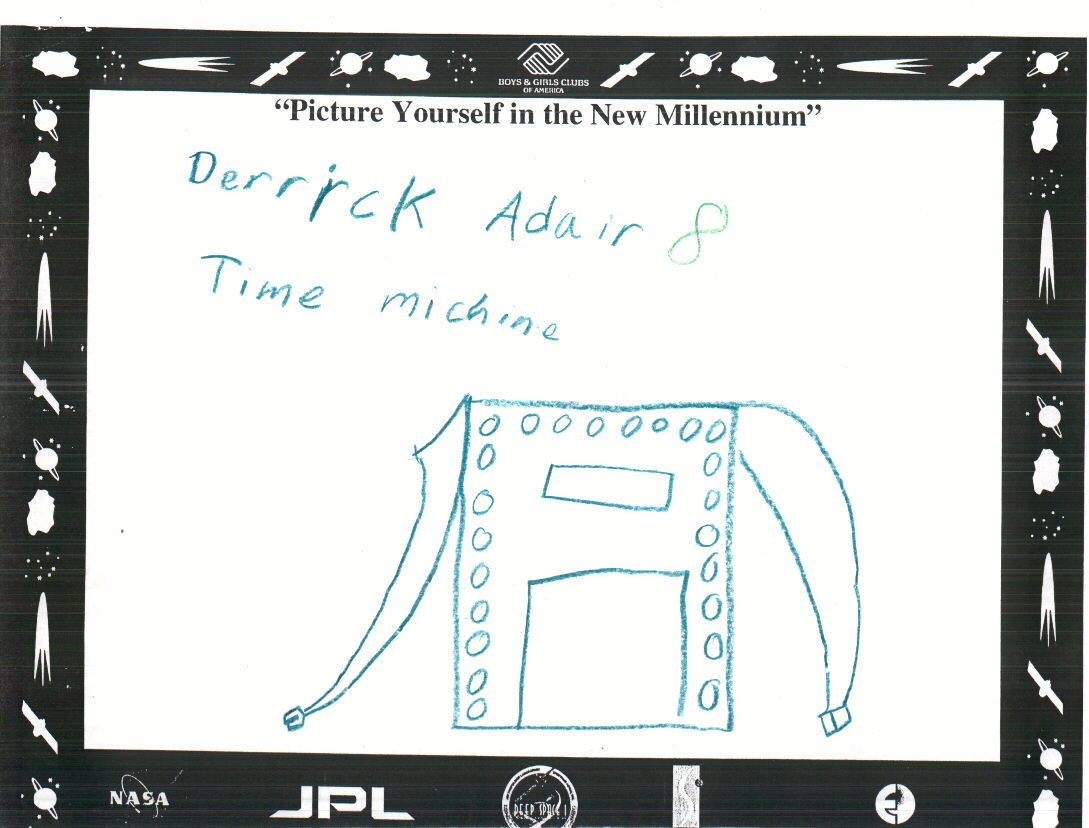 BOYS & GIRLS CLUBS
OF AMERICA
“Picture Yourself in the New Millennium”
Derrick Adair 8
Time michine
NASA
JPL
DEEP SPACE 1